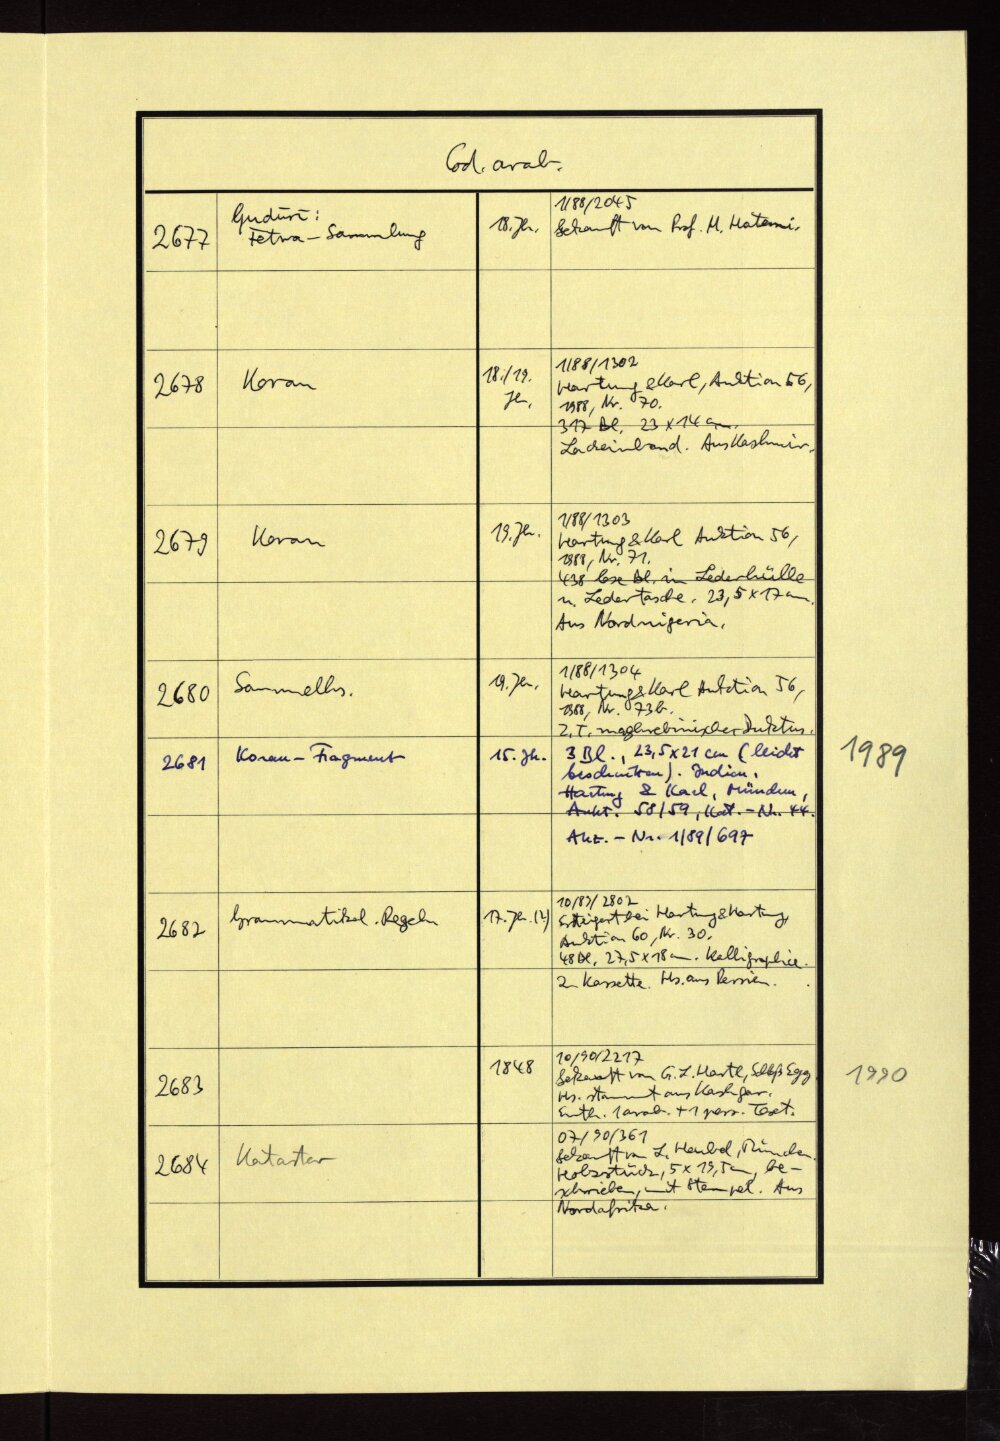 Cod. arab.
2677
Gudūrī:
Fetwa-Sammlung
18. Jh.
1/88/2045
Gekauft von Prof. M. Hatemi.
2678
Koran
18./19.
Jh.
1/88/1302
Hartung & Karl, Auktion 56,
1988, Nr. 70.
317 Bl. 23 x 14 cm.
Lackeinband. Aus Kashmir.
2679
Koran
19. Jh.
1/88/1303
Hartung & Karl Auktion 56,
1988, Nr. 71.
438 lose Bl. in Lederhülle
u. Ledertasche. 23,5 x 17 cm.
Aus Nordnigeria.
2680
Sammelhs.
19. Jh.
1/88/1304
Hartung & Karl Auktion 56,
1988, Nr. 73b.
Z.T. maghrebinischer Duktus.
2681
Koran-Fragment
15. Jh.
3 Bl., 23,5 x 21 cm (leicht
beschnitten). Indien.
Hartung & Karl, München,
Aukt. 58/59, Kat.-Nr. 44.
Akz.-Nr. 1/89/697
1989
2682
Grammatikal. Regeln
17. Jh. (?)
10/89/2802
Ersteigert bei Hartung & Hartung
Auktion 60, Nr. 30.
48 Bl. 27,5 x 18 cm. Kalligraphie.
In Kassette. Hs. aus Persien.
2683
1848
10/90/2217
Gekauft von G. L. Hartl, Schloß Egg.
Hs. stammt aus Kashgar.
Enth. 1 arab. + 1 pers. Text.
1990
2684
Kataster
07/90/361
Gekauft von L. Heubel, München.
Holzstück, 5 x 19,5 cm, be-
schrieben, mit Stempel. Aus
Nordafrika.